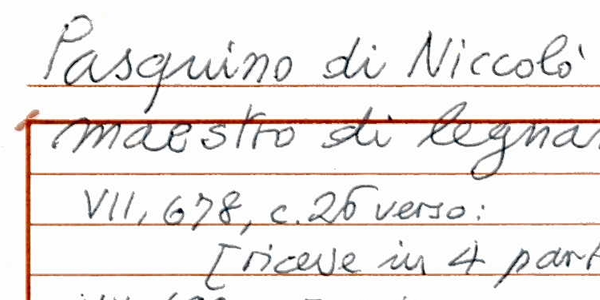 Pasquino di Niccolò
maestro di legna
VII, 678, c. 26 verso:
[riceve in 4 part